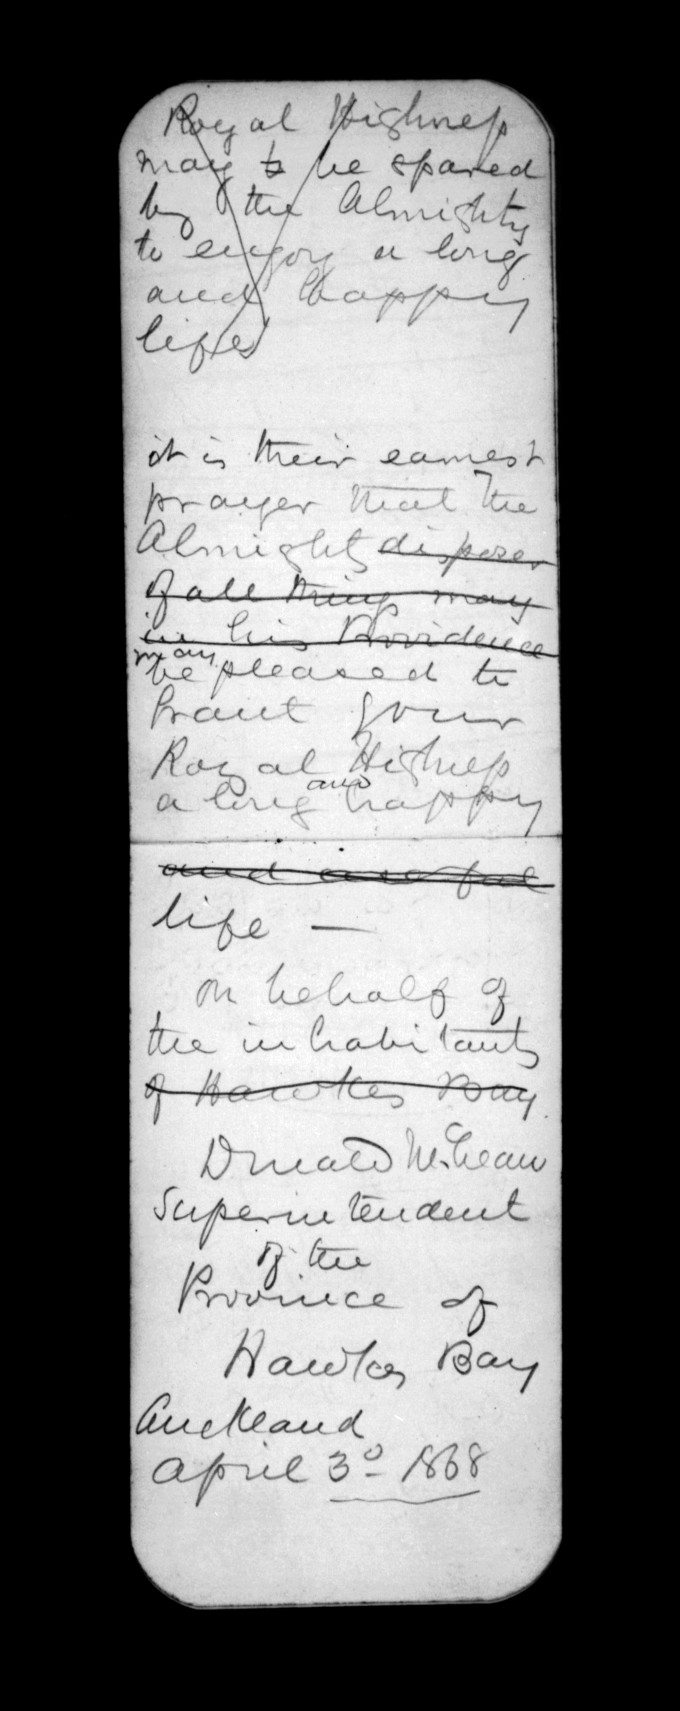 Royal Highness
may to be spared
by the Almighty
to enjoy a long
and happy
life
it is their earnest
prayer that the
Almighty disposer
of all things may
in his Providence
may
be pleased to
Grant your
Royal Highness
and
a long happy
and useful
life —
On behalf of
the inhabitants
of Hawkes Bay
Donald McLean
Superintendent
of the
Province of
Hawkes Bay
Auckland
April 3d 1868